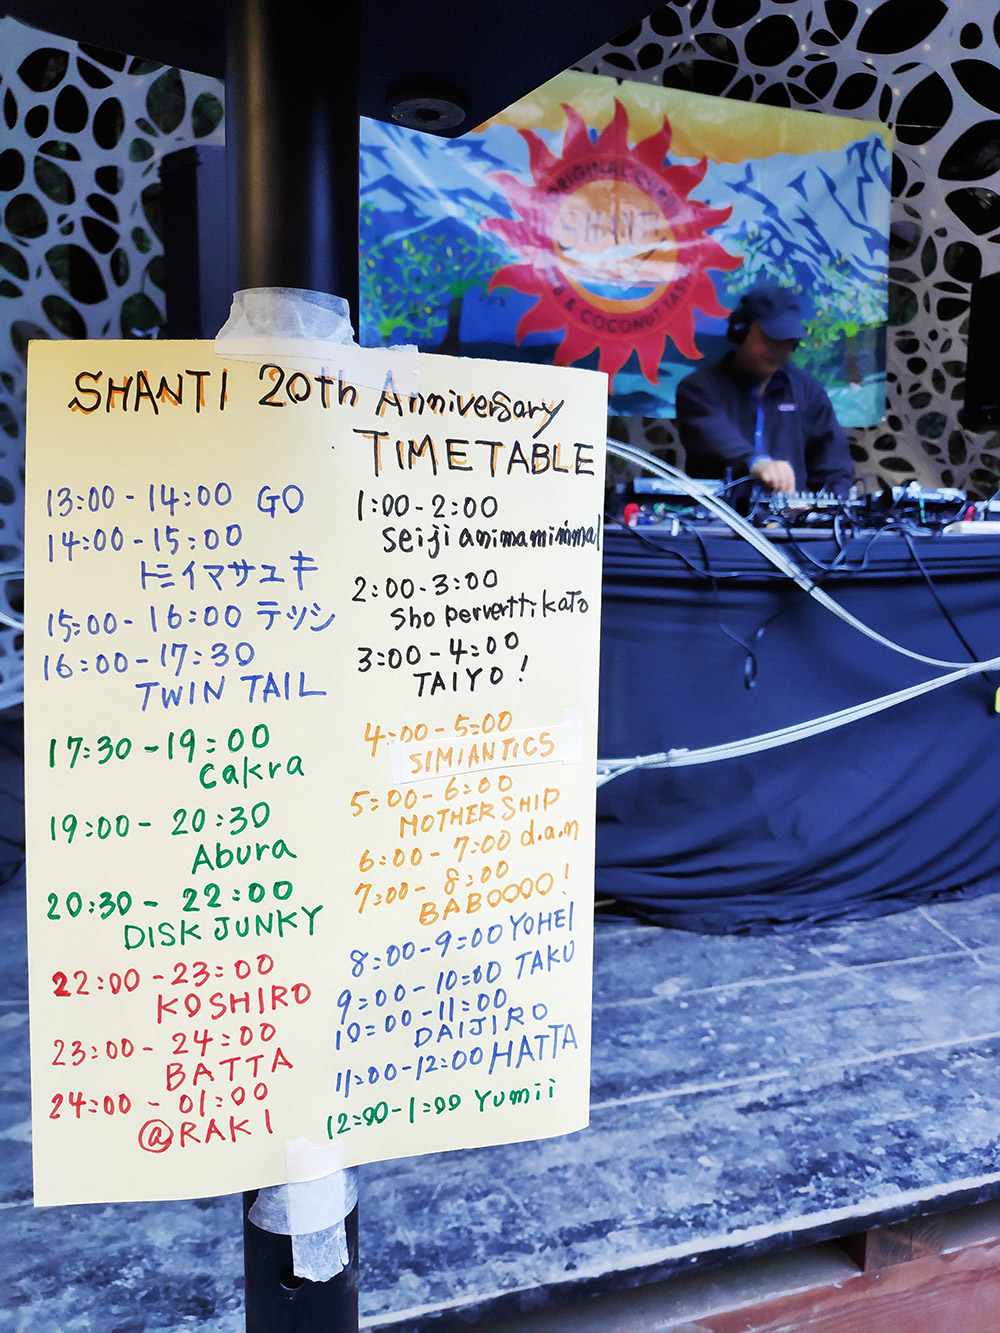 SHANTI 20th Anniversary
TIMETABLE
13:00 - 14:00 GO
14:00 - 15:00
トミイマサユキ
15:00 - 16:00 テツシ
16:00 - 17:30
TWIN TAIL
17:30 - 19:00
Cakra
19:00 - 20:30
Abura
20:30 - 22:00
DISK JUNKY
22:00 - 23:00
KOSHIRO
23:00 - 24:00
BATTA
24:00 - 01:00
@RAKI
1:00 - 2:00
Seiji animaminimal
2:00 - 3:00
Sho perverttikato
3:00 - 4:00
TAIYO!
4:00 - 5:00
SIMIANTICS
5:00 - 6:00
MOTHER SHIP
6:00 - 7:00 d.a.n
7:00 - 8:00
BABOOOO!
8:00 - 9:00 YOHEI
9:00 - 10:00 TAKU
10:00 - 11:00
DAIJIRO
11:00 - 12:00 HATTA
12:00 - 1:00 Yumii
ORIGINAL
SHANTI
& COCONUT